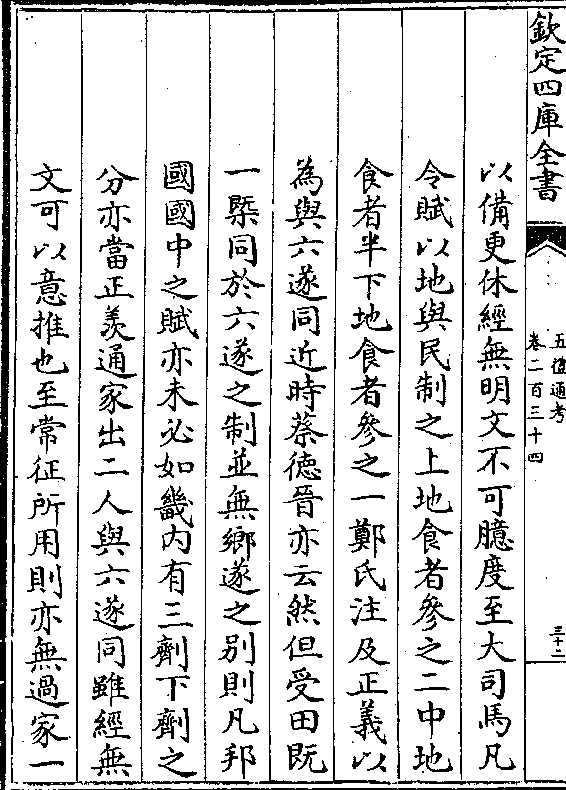 欽定四庫全書
五禮通考
卷二百三十四
三十二
以備更休經無明文不可臆度至大司馬凡
令賦以地與民制之上地食者參之二中地
食者半下地食者參之一鄭氏注及正義以
為與六遂同近時蔡德晉亦云然但受田既
一槩同於六遂之制並無鄉遂之别則凡邦
國國中之賦亦未必如畿内有三劑下劑之
分亦當正羡通家出二人與六遂同雖經無
文可以意推也至常征所用則亦無過家一